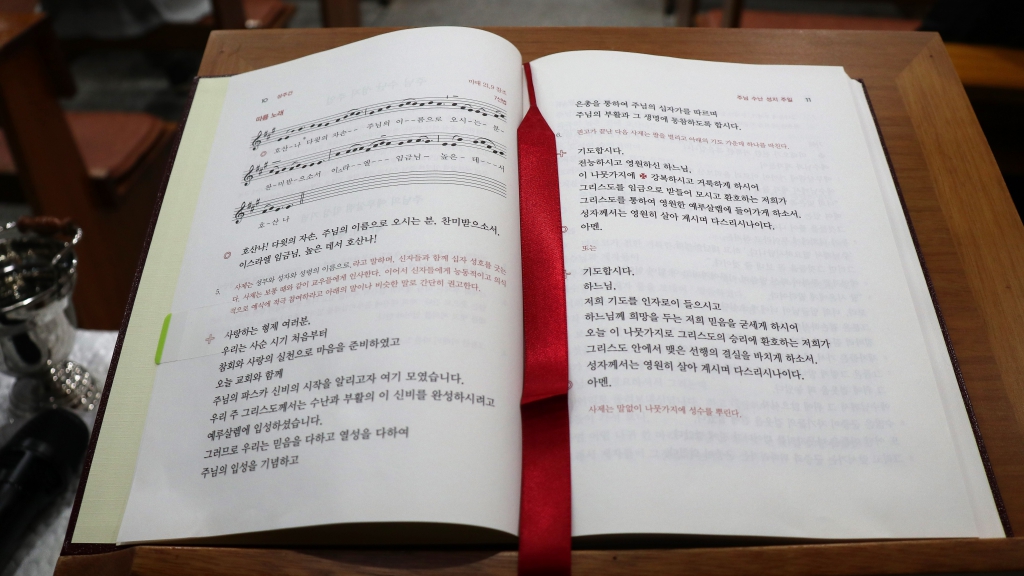 10 성주간
마태 21,9 참조
따름 노래
호산-나 다윗의 자손-- 주님의 이--름으로 오시-는- 분-
찬-미받-으소서 이스라-엘--- 임금님- 높은- 데--서
호-산 나
호산나! 다윗의 자손, 주님의 이름으로 오시는 분, 찬미받으소서.
이스라엘 임금님, 높은 데서 호산나!
5. 사제는 성부와 성자와 성령의 이름으로 라고 말하며, 신자들과 함께 십자 성호를 긋는
다. 사제는 보통 때와 같이 교우들에게 인사한다. 이어서 신자들에게 능동적이고 의식
적으로 예식에 적극 참여하라고 아래의 말이나 비슷한 말로 간단히 권고한다.
사랑하는 형제 여러분,
우리는 사순 시기 처음부터
참회와 사랑의 실천으로 마음을 준비하였고
오늘 교회와 함께
주님의 파스카 신비의 시작을 알리고자 여기 모였습니다.
우리 주 그리스도께서는 수난과 부활의 이 신비를 완성하시려고
예루살렘에 입성하셨습니다.
그러므로 우리는 믿음을 다하고 열성을 다하여
주님의 입성을 기념하고
주님 수난 성지 주일 11
은총을 통하여 주님의 십자가를 따르며
주님의 부활과 그 생명에 동참하도록 합시다.
6. 권고가 끝난 다음 사제는 팔을 벌리고 아래의 기도 가운데 하나를 바친다.
기도합시다.
전능하시고 영원하신 하느님,
이 나뭇가지에 ✠ 강복하시고 거룩하게 하시어
그리스도를 임금으로 받들어 모시고 환호하는 저희가
그리스도를 통하여 영원한 예루살렘에 들어가게 하소서.
성자께서는 영원히 살아 계시며 다스리시나이다.
아멘.
또는
기도합시다.
하느님,
저희 기도를 인자로이 들으시고
하느님께 희망을 두는 저희 믿음을 굳세게 하시어
오늘 이 나뭇가지로 그리스도의 승리에 환호하는 저희가
그리스도 안에서 맺은 선행의 결실을 바치게 하소서.
성자께서는 영원히 살아 계시며 다스리시나이다.
아멘.
사제는 말없이 나뭇가지에 성수를 뿌린다.